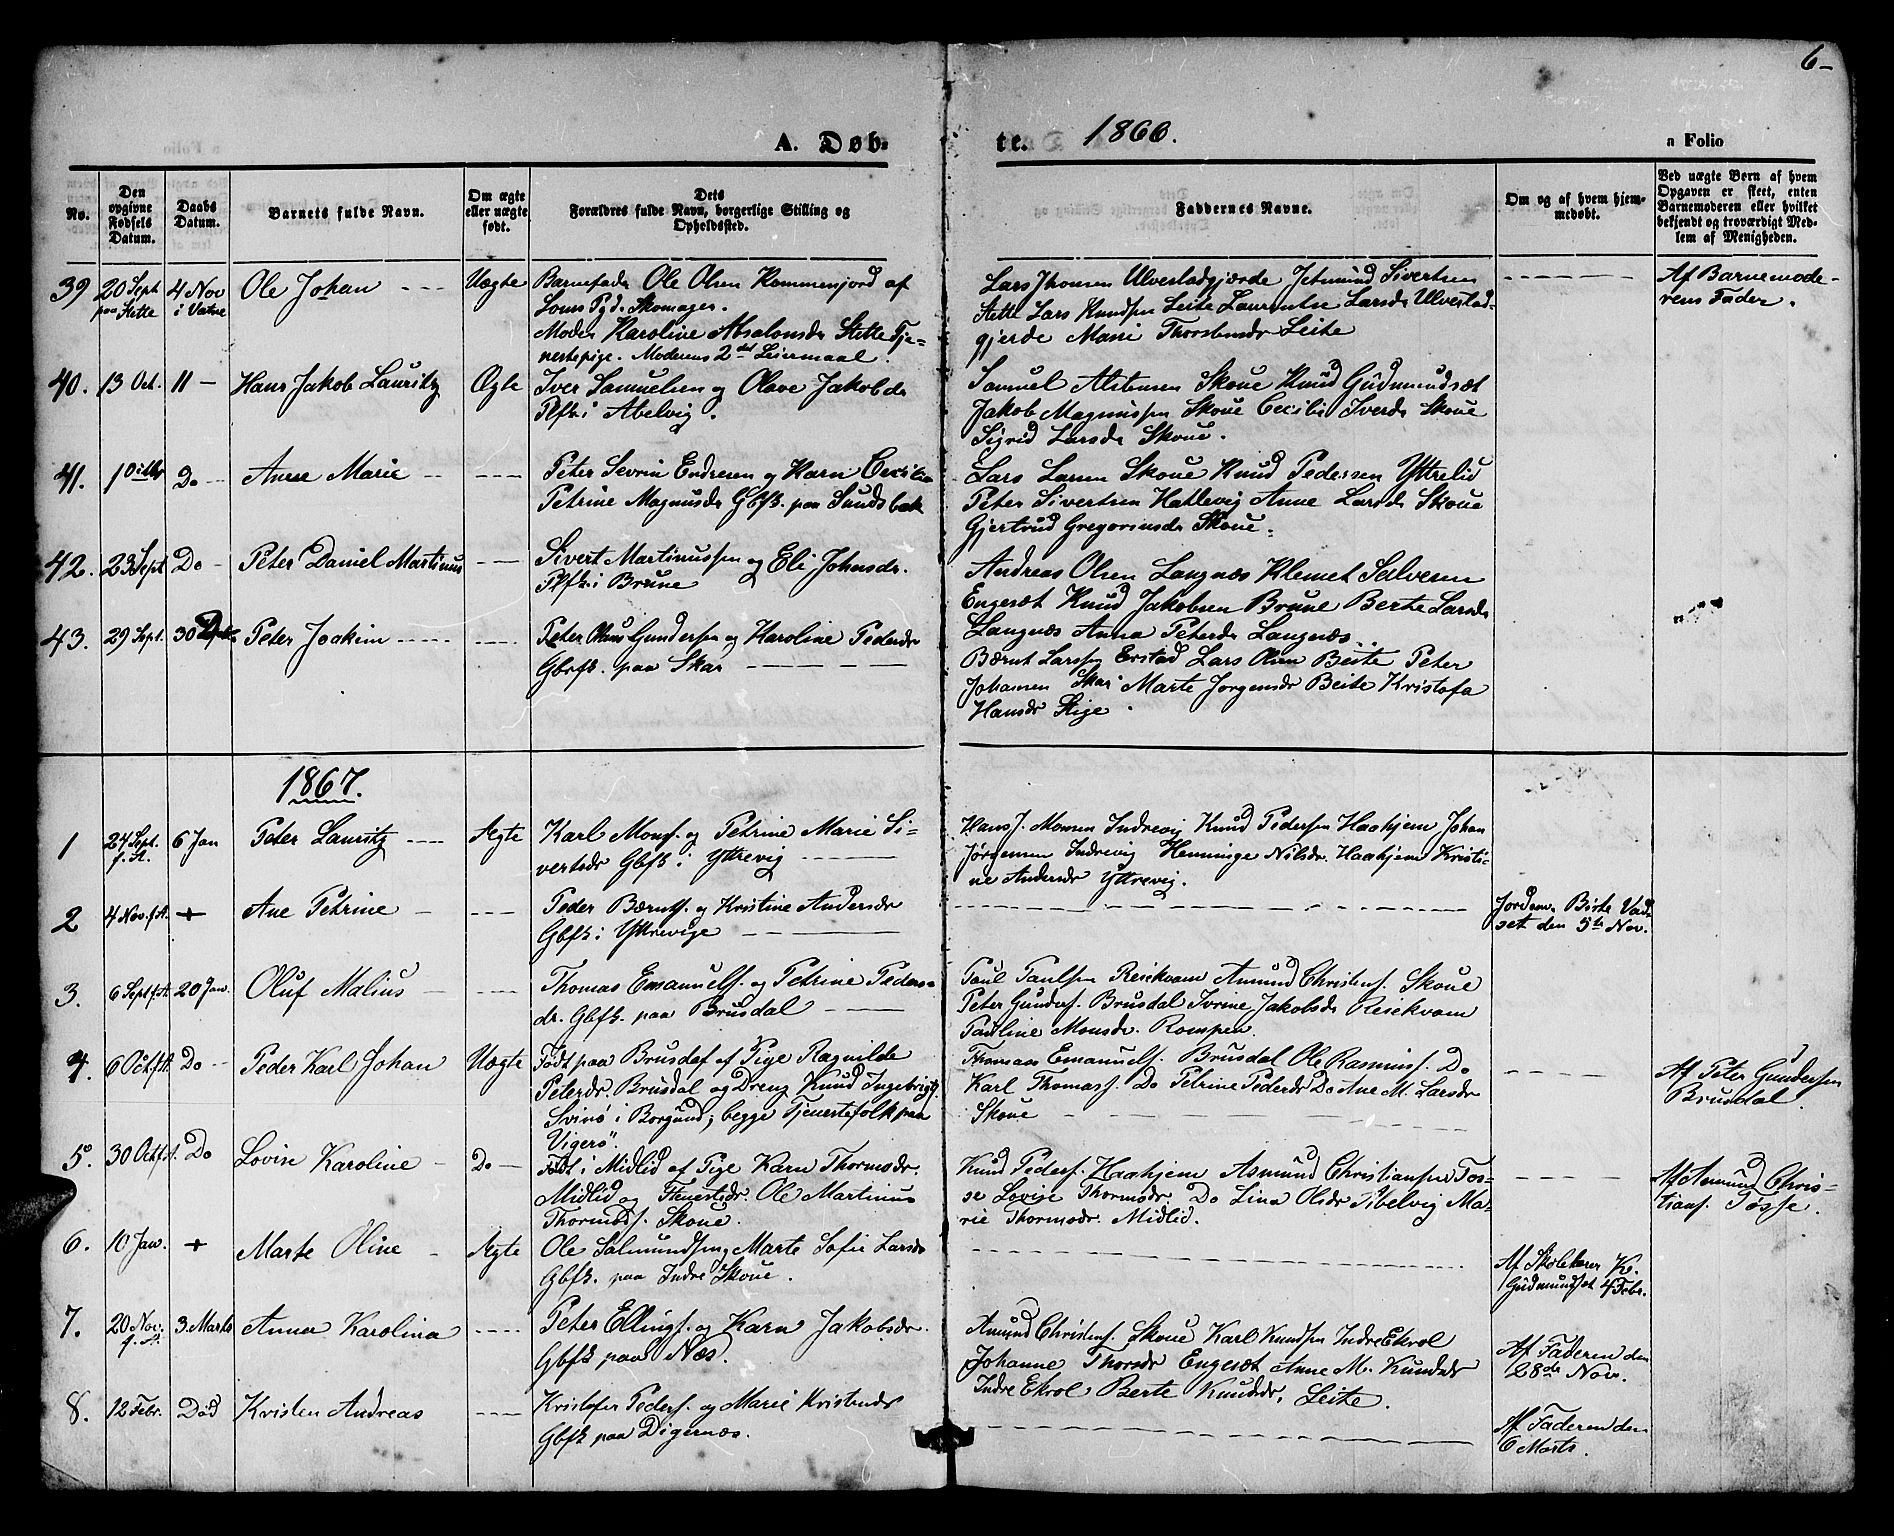 6-
A. Døb-
te.
1866.
n Folio
No.
Den opgivne Fødsels Datum.
Daabs Datum.
Barnets fulde Navn.
Om ægte eller uægte født.
Dets Forældres fulde Navn, borgerlige Stilling og Opholdssted.
Faddernes Navne.
Om og af hvem hjemmedøbt.
Ved uægte Børn af hvem Opgaven er skeet, enten Barnemoderen eller hvilket bekjendt og troværdigt Medlem af Menigheden.
39 20 Sept 4 Nov Ole Johan Uægte
paa Slette i Vatne
Barnefader Ole Olsen Kommenjord af
Loms Pgd. Skomager.
Moder Karoline Absalonsdr Slette Tje-
nestepige. Moderens 2det Leiermaal.
Lars Jhonsen Ulvestadgjærde Jetmund Sivertsen
Slette Lars Knudsen Leite Laurentse Larsdr Ulvestad-
gjerde Marie Thorstensdr Leite
Af Barnemode-
rens Fader.
40. 13 Oct. 11 - Hans Jakob Lauritz Ægte
Iver Samuelsen og Olave Jakobdr
Plfk i Abelvig.
Samuel Alstensen Skoue Knud Gudmundsæt
Jakob Magnussen Skoue Cecilie Iversdr Skoue
Sigrid Larsdr Skoue.
41. Do - Anne Marie
Peter Sevrin Endresen og Karn Cecilia
Petrine Magnusdr Gbfk. paa Sundsbak
Lars Larsen Skoue Knud Pedersen Yttrelid
Peter Sivertsen Hatlevig Anne Larsdr Skoue
Gjertrud Gregoriusdr Skoue.
42. 23 Sept. Do - Peter Daniel Martinus
Sivert Martinussen og Eli Johnsdr.
Plfk i Brune
Andreas Olsen Langnæs Klemet Salvesen
Engesæt Knud Jakobsen Brune Berte Larsdr
Langnæs Anna Petersdr Langnæs.
43. 29 Sept. 30 Peter Joakim
Peter Olaus Gundersen og Karoline Pedersdr
Gbrfk. paa Skar
Bærnt Larssen Erstad Lars Olsen Beite Peter
Johansen Skar Marte Jorgensdr Beite Kristofa
Hansdr Slige.
1867.
1 24 Sept. f. A. 6 Jan Peter Lauritz Ægte
Karl Monss. og Petrine Marie Si-
vertsdr Gbfk i Yttrevig
Hans J. Monsen Indrevig Knud Pedersen Haahjem Johan
Jørgensen Indrevig Henninge Nilsdr. Haahjem Kristi-
ne Andersdr Yttrevig.
2 4 Nov. f. A. + Ane Petrine
Peder Bærnts. og Kristine Andersdr
Gbfk i Yttrevige
Jordem. Berte Vad-
set den 5te Nov.
3. 6 Sept f. A. 20 Jan. Oluf Malius
Thomas Emanuels. og Petrine Peders-
dr. Gbfk. paa Brusdal
Paul Paulsen Reiekvam Amund Christens. Skoue
Peter Gunders. Brusdal Ivrine Jakobsdr Reiekvam
Pauline Monsdr. Rompen.
4. 6 Oct. f. A. Do - Peder Karl Johan Uægte
Født paa Brusdal af Pige Ragnilde
Petersdr. Brusdal og Dreng Knud Ingebrigts.
Svinø i Borgund; begge Tjenestefolk paa
Vigerø.
Thomas Emanuels. Brusdal Ole Rasmuss. Do
Karl Thomass. Do Petrine Pedersdr Do Ane M. Larsdr
Skoue
Af Peter Gundersen
Brusdal.
5. 30 Oct. f. A. Do Lovise Karoline Do -
Født i Midlid af Pige Karn Thormodsdr.
Midlid og Ole Martinus
Thormods. Skoue.
Knud Peders. Haahjem Asmund Christiansen Tøs-
se Lovise Thormsdr. Do Lina Olsdr Abelvig Ma-
rie Thormodsdr. Midlid.
Af Asmund Chris-
tians. Tøsse.
6. 10 Jan. + Marte Oline Ægte
Ole Salmundsen og Marte Sofie Larsdr
Gbfk. paa Indre Skoue.
Af Skolelærer K.
Gudmundsæt 4 Febr.
7. 20 Nov. f. A. 3. Marts Anna Karolina
Peter Ellings. og Karn Jakobsdr.
Gbfk paa Næs.
Amund Christens. Skoue Karl Knudsen Indre Ekrol
Johanne Thorsdr Engesæt Anne M. Knudsdr
Indre Ekrol Berte Knudsdr. Leite.
Af Faderen den
28de Nov.
8. 12 Febr. Død Kristen Andreas
Kristofer Peders. og Marie Kristensdr
Gbfk paa Digernæs.
Af Faderen den
6 Marts.